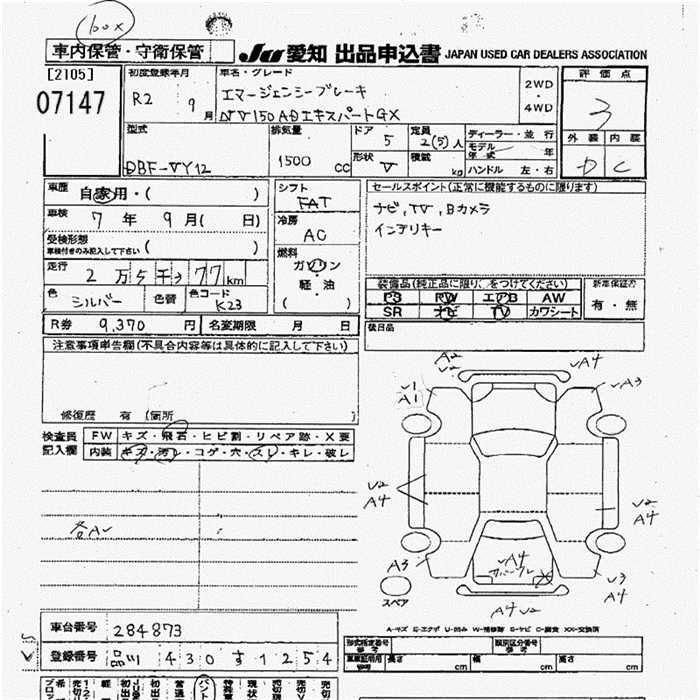 box
車内保管・守衛保管
JU 愛知 出品申込書 JAPAN USED CAR DEALERS ASSOCIATION
[2105]
07147
初度登録年月
R2 9月
車名・グレード
エマージェンシーブレーキ
NV150ADエキスパートGX
2WD
・
4WD
評価点
3
外装 内装
D C
型式
DBF-VY12
排気量
1500 cc
ドア 5
形状 V
定員 2(5)人
積載 kg
ディーラー・並行
モデル年式 年
ハンドル 左・右
車歴 自家用・( )
車検 7年 9月( 日)
受検形態
車検付きのみ記入して下さい ( )
走行 2万5千377km
色 シルバー 色替 色コード K23
シフト
FAT
冷房
AC
燃料
ガソリン
・
軽・油
( )
セールスポイント(正常に機能するものに限ります)
ナビ,TV,Bカメラ
インテリキー
装備品(純正品に限り、をつけてください)
PS PW エアB AW
SR ナビ TV カワシート
新車保証の
有・無
後日品
R券 9,370円 名変期限 月 日
注意事項申告欄(不具合内容等は具体的に記入して下さい)
修復歴 有 (箇所 )
検査員
記入欄
FW キズ・飛石・ヒビ割・リペア跡・X要
内装 キズ・汚レ・コゲ・穴・スレ・キレ・破レ
各AU
A2
U2
A4
U1
A1
A3
U2
A4
U2
A4
A3
UA4
U3
A4
A4 U2
スペア
A-キズ E-エクボ U-凹み W-補修跡 S-サビ C-腐食 XX-交換済
車台番号 284873
登録番号 品川 430 す 1254
形式指定番号
参考
類別区分番号
参考
車庫証明用
参考
長さ cm 幅 cm 高さ cm